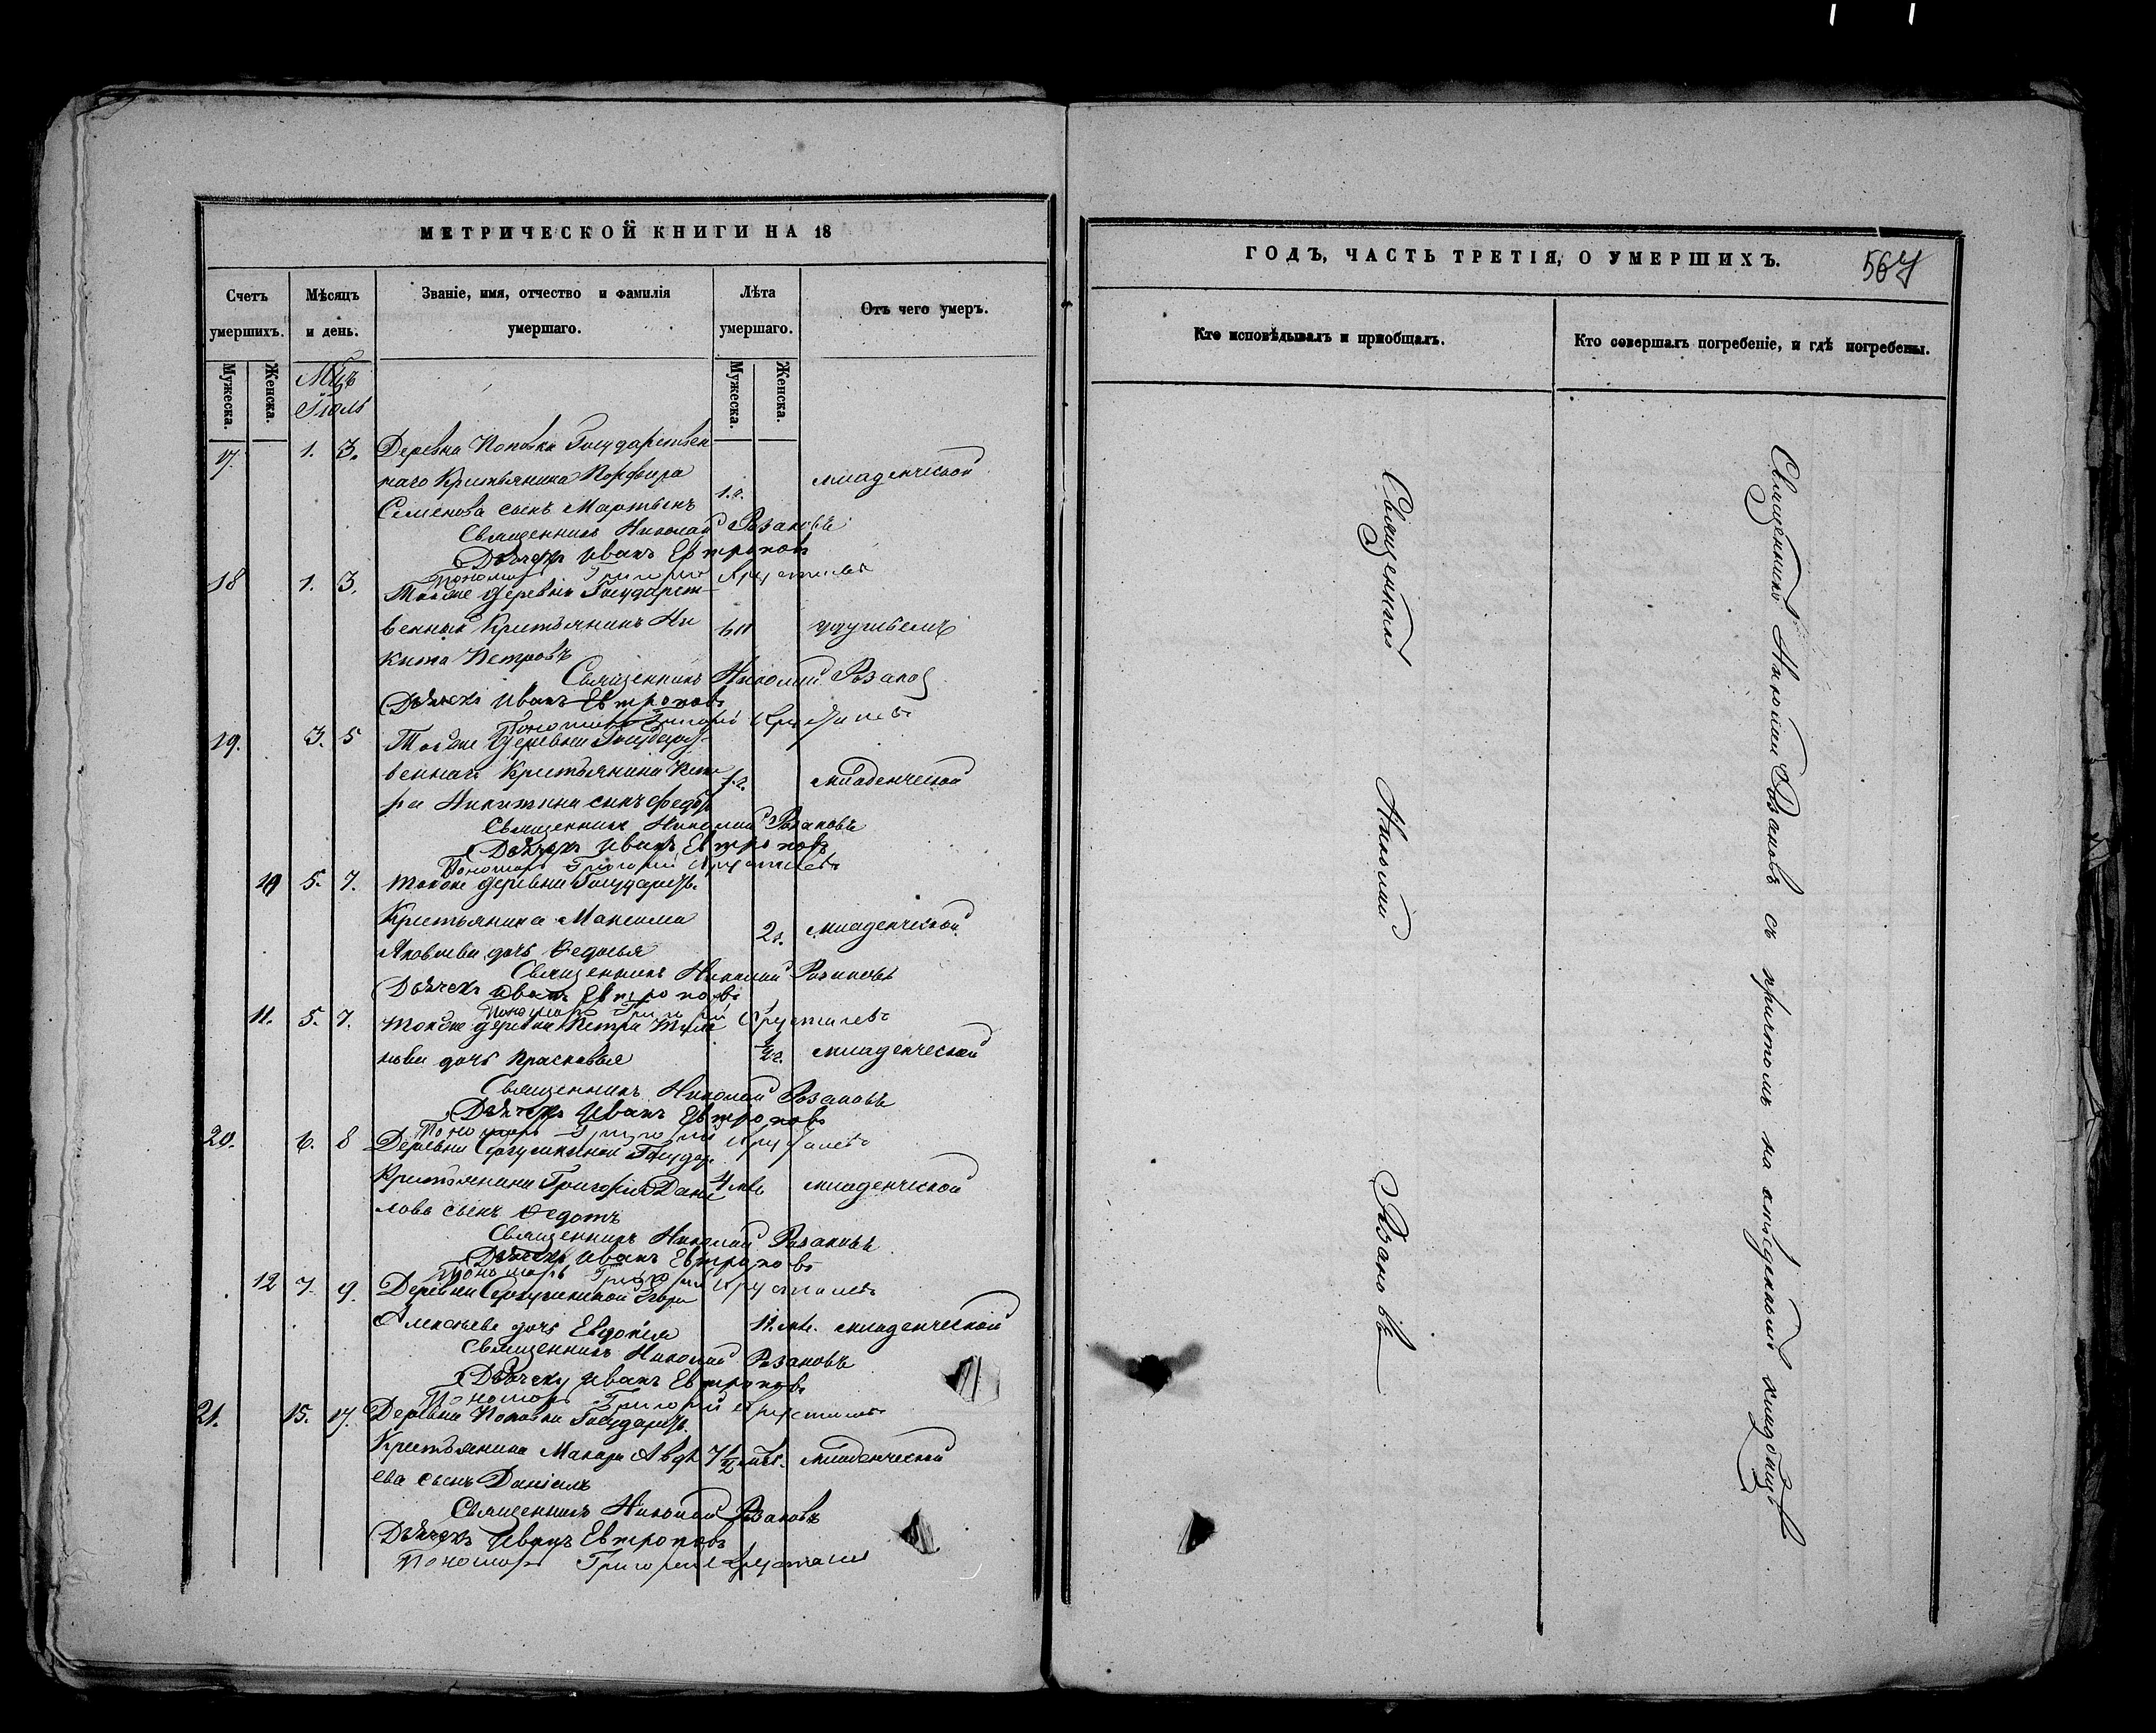 МЕТРИЧЕСКОЙ КНИГИ НА 18
Счетъ умершихъ.
Мѣсяцъ и день.
Званіе, имя, отчество и фамилія умершаго.
Лѣта умершаго.
Отъ чего умеръ.
Мужеска.
Женска.
Мужеска.
Женска.
Мцъ
Іюль
17. 1. 3. Деревна Поповки Государствен
наго Крестьянина Порфира 1.г. младенческой
Семенова сынъ Мартынъ
Священникъ Николай Розановъ
Дьячекъ Иванъ Евтроповъ
Пономарь Григорій Хрусталевъ
18 1. 3. Тойже деревни Государст-
венный Крестьянинъ Ни
кита Петровъ
Священникъ Николай Розанов
Дьячекъ Иванъ Евтроповъ
Пономарь Григорій Хрусталевъ
19. 3. 5 Тойже деревни Государст-
веннаго Крестьянина Пет 1.г. младенческой
ра Никитина сынъ Федоръ
Священникъ Николай Розановъ
Дьячекъ Иванъ Евтроповъ
Пономарь Григорій Хрусталевъ
10 5. 7. тойже деревни Государств.
Крестьянина Максима 2г. младенческой
Яковлева дочь Федосья
Священникъ Николай Розановъ
Дьячекъ Иванъ Евтроповъ
Пономарь Григорій Хрусталевъ
11. 5. 7. тойже деревни Петра
нова дочь Прасковья ½г. младенческой
Священникъ Николай Розановъ
Дьячекъ Иванъ Евтроповъ
Пономарь Григорій Хрусталевъ
20. 6. 8 Деревни Государ.
Крестьянина Григорія Дани 4 мѣ младенческой
лова сынъ Федотъ
Священникъ Николай Розановъ
Дьячекъ Иванъ Евтроповъ
Пономарь Григорій Хрусталевъ
12 7. 9. Деревни Егора
Алексѣева дочь Евдокія 11.мѣ. младенческой
Священникъ Николай Розановъ
Дьячекъ Иванъ Евтроповъ
Пономарь Григорій Хрусталевъ
21. 15. 17. Деревни Поповки Государств.
Крестьянина Макара Авдѣ 7½ младенческой
ева сынъ Даніилъ
Священникъ Николай Розановъ
Дьячекъ Иванъ Евтроповъ
Пономарь Григорій Хрусталев
ГОДЪ, ЧАСТЬ ТРЕТІЯ, О УМЕРШИХЪ. 567
Кто исповѣдывалъ и пріобщалъ.
Кто совершалъ погребеніе, и гдѣ погребены.
Священникъ Николай Розановъ
Священникъ Николай Розановъ съ причтомъ на отведенномъ кладбищѣ